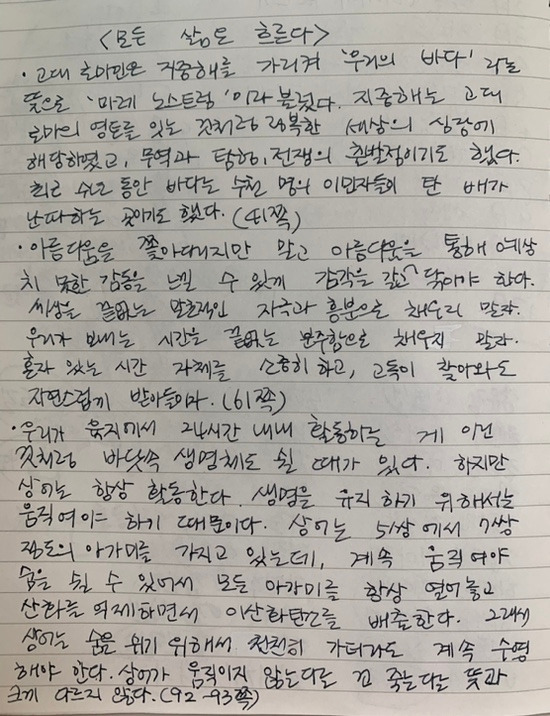 <모든 삶은 흐른다>
· 고대 로마인은 지중해를 가리켜 '우리의 바다' 라는
뜻으로 '마레 노스트럼' 이라 불렀다. 지중해는 고대
로마의 영토를 잇는 것처럼 광복한 세상의 심장에
해당하였고, 무역과 탐험, 전쟁의 출발점이기도 했다.
최근 수년 동안 바다는 수천 명의 이민자들이 탄 배가
난파하는 곳이기도 했다. (41쪽)
· 아름다움을 쫓아다니지만 말고 아름다움을 통해 예상
치 못한 감동을 느낄 수 있게 감각을 갈고 닦아야 한다.
세상을 끝없는 말초적인 자극과 흥분으로 채우지 말자.
우리가 보내는 시간을 끝없는 분주함으로 채우지 말자.
혼자 있는 시간 자체를 소중히 하고, 고독이 찾아와도
자연스럽게 받아들이자. (61쪽)
· 우리가 육지에서 24시간 내내 활동하는 게 아닌
것처럼 바닷속 생명체도 쉴 때가 있다. 하지만
상어는 항상 활동한다. 생명을 유지 하기 위해서는
움직여야 하기 때문이다. 상어는 5쌍에서 7쌍
정도의 아가미를 가지고 있는데, 계속 움직여야
숨을 쉴 수 있어서 모든 아가미를 항상 열어놓고
산화를 억제하면서 이산화탄소를 배출한다. 그래서
상어는 숨을 쉬기 위해서 천천히 가더라도 계속 수영
해야 한다. 상어가 움직이지 않는다는 건 죽는다는 뜻과
크게 다르지 않다. (92-93쪽)